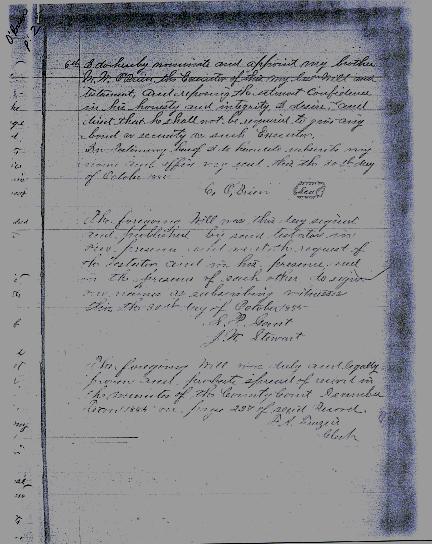 O'Brien
P. 2
6th I do hereby nominate and appoint my brother
W. W. O'Brien, the Executor of this my last Will and
Testament, and reposing the utmost Confidence
in his honesty and integrity I desire and
direct that he shall not be required to give any
bond or security as such Executor.
In Testimony whereof I do hereunto subscribe my
name and affix my seal this the 30th day
of October 1885
C. O'Brien Seal
The foregoing Will was this day signed
and published by said testator in
our presence and we at the request of
the testator and in his presence and
in the presence of each other do sign
our names as subscribing witnesses
This the 30th day of October 1885
J. W. Stewart
The foregoing Will was duly and legally
proven and probate spread of record in
the minutes of the County Court December
Term on page 227 of said Record.
Clerk